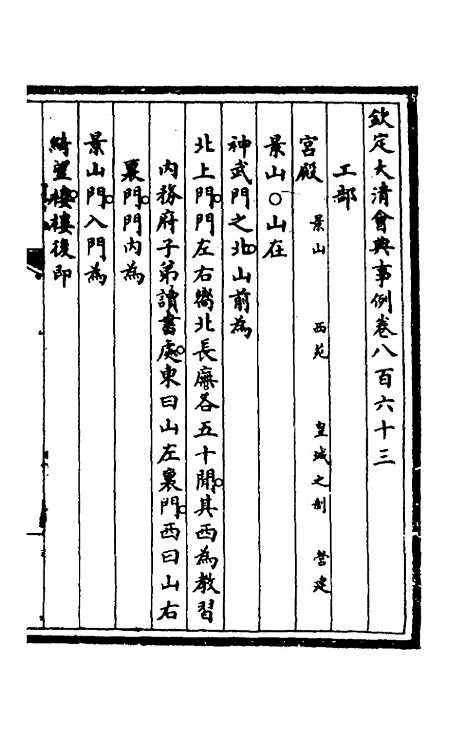 欽定大清會典事例卷八百六十三
工部
宮殿 景山 西苑 皇城之制 營建
景山○山在
神武門之北山前為
北上門門左右嚮北長廡各五十間其西為教習
內務府子弟讀書處東曰山左裏門西曰山右
裏門門內為
景山門入門為
綺望樓樓後即